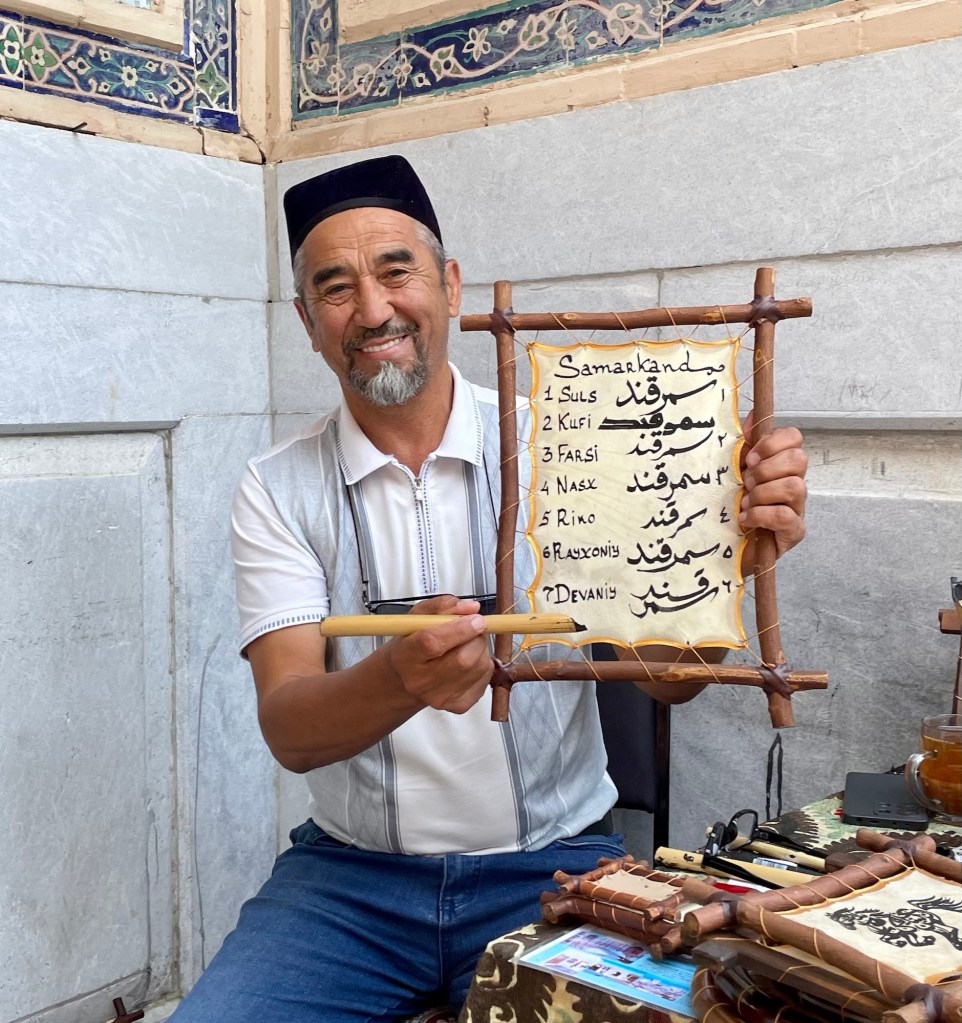 Samarkand
1 SULS سمرقند ١
2 KUFI سمرقند
3 FARSI سمرقند ٢
4 NASX سمرقند ٣
5 RIKO سمرقند ٤
6 RAYXONIY سمرقند ٥
7 DEVANIY سمرقند ٦